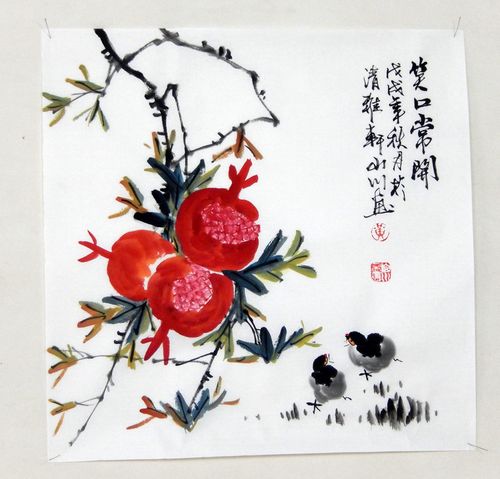 笑口常開
戊戌年秋月於
清雅軒山川畫